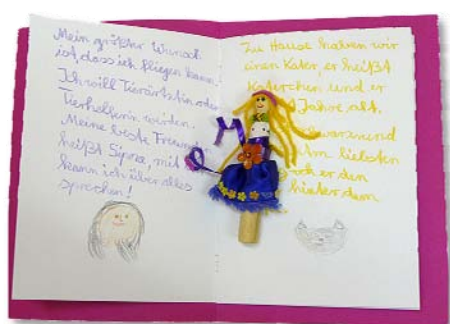 Mein größter Wunsch
ist, dass ich fliegen kann!
Ich will Tierärztin oder
Tierhelferin werden.
Meine beste Freundin
heißt Sipra, mit
kann ich über alles
sprechen!
Zu Hause haben wir
einen Kater, er heißt
Katerchen und er
Jahre alt.
schwarz und
Am liebsten
er den
hinter dem
M